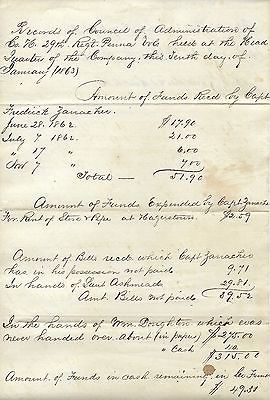 Records of Council of Administration of
Co. H. 29th Regt. Penna Vols held at the Head
Quarters of the Company, this Tenth day of
January (1863)
Amount of Funds Recd by Capt
Fredrick Zarracher
June 28. 1862. $17.90
July 7 1862. 21.00
" 17 " 6.00
Nov 7 " 7.00
Total — 51.90
Amount of Funds Expended by Capt Zarracher
For Rent of Stove & Pipe at Hagerstown. $2.59
Amount of Bills recd which Capt Zarracher
has in his possession not paid 9.71
In hands of Lieut Ashmead 29.81
Amt. Bills not paid 39.52
In the hands of Wm. Doughton which was
never handed over about (in paper) $275.00
" Cash
$315.00
Amount of Funds in cash remaining in Co. Fund
$ 49.31